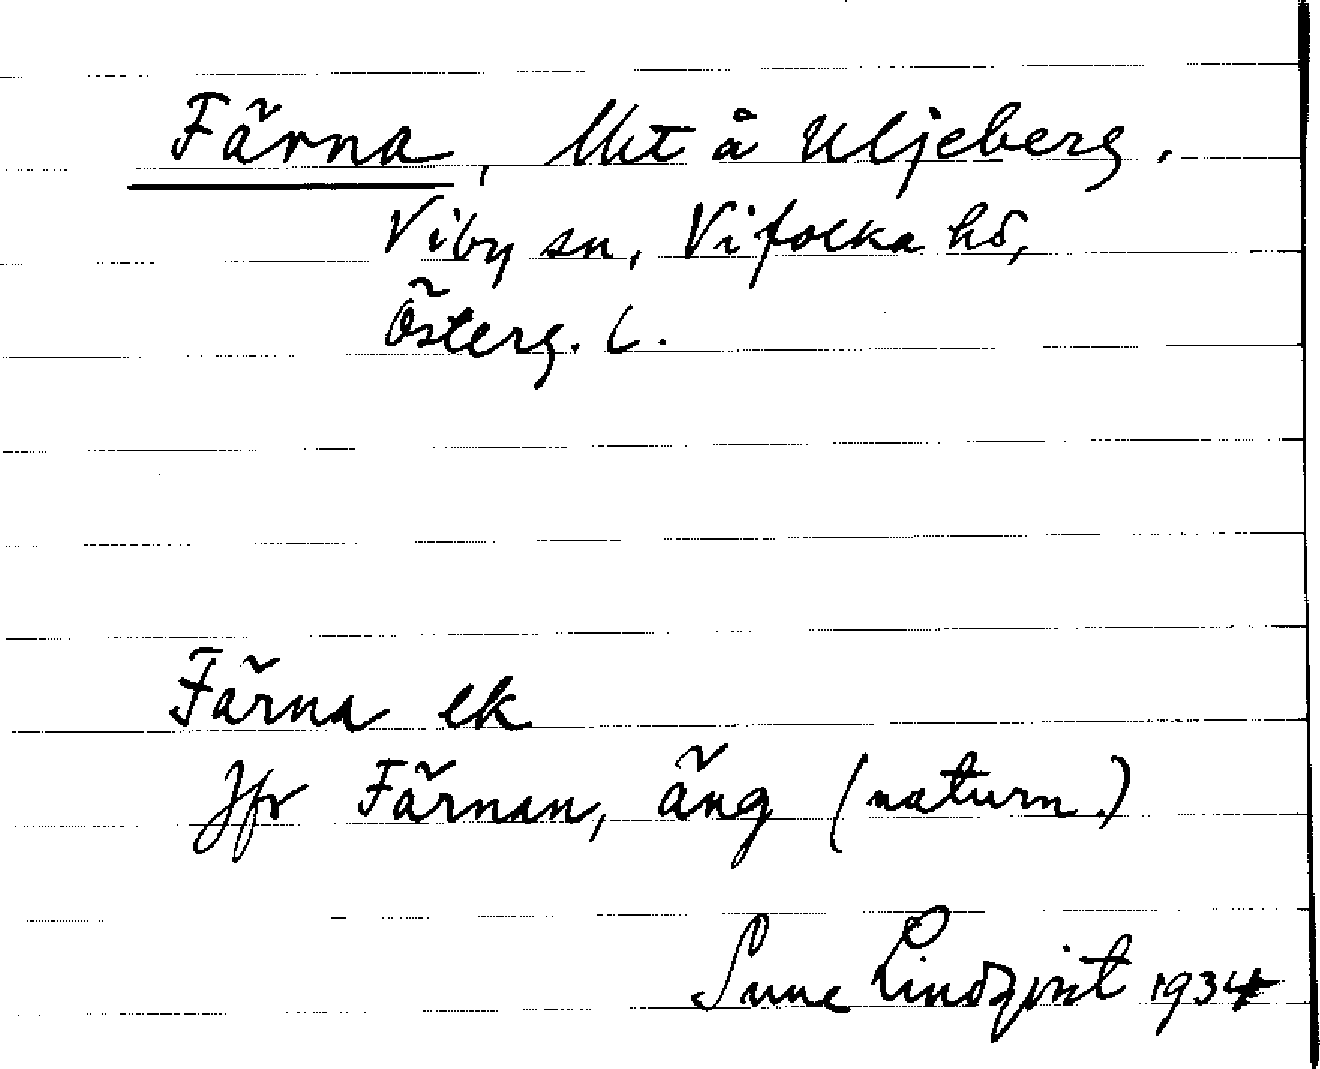 Färna, Mkt å Uljeberg,
Viby sn, Vifolka hd,
Österg. l.
Färna ek
Jfr Färnan, äng (naturn.)
Sune Lindqvist 1934